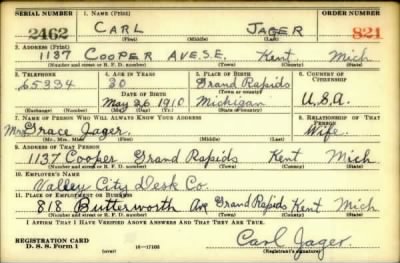 SERIAL NUMBER 1. NAME (Print) ORDER NUMBER
2462 CARL JAGER 821
(First) (Middle) (Last)
2. ADDRESS (Print)
1137 COOPER AVE. S.E. Kent Mich
(Number and street or R. F. D. number) (Town) (County) (State)
3. TELEPHONE 4. AGE IN YEARS 5. PLACE OF BIRTH 6. COUNTRY OF CITIZENSHIP
65334 30 Grand Rapids
DATE OF BIRTH (Town or county)
May 26 1910 Michigan U.S.A.
(Exchange) (Number) (Mo.) (Day) (Yr.) (State or country)
7. NAME OF PERSON WHO WILL ALWAYS KNOW YOUR ADDRESS 8. RELATIONSHIP OF THAT PERSON
Mrs Grace Jager. Wife.
(Mr., Mrs., Miss) (First) (Middle) (Last)
9. ADDRESS OF THAT PERSON
1137 Cooper Grand Rapids Kent Mich
(Number and street or R. F. D. number) (Town) (County) (State)
10. EMPLOYER'S NAME
Valley City Desk Co.
11. PLACE OF EMPLOYMENT OR BUSINESS
818 Butterworth Ave Grand Rapids Kent Mich
(Number and street or R. F. D. number) (Town) (County) (State)
I AFFIRM THAT I HAVE VERIFIED ABOVE ANSWERS AND THAT THEY ARE TRUE.
REGISTRATION CARD
D. S. S. Form 1 (over) 16—17105 Carl Jager
(Registrant's signature)